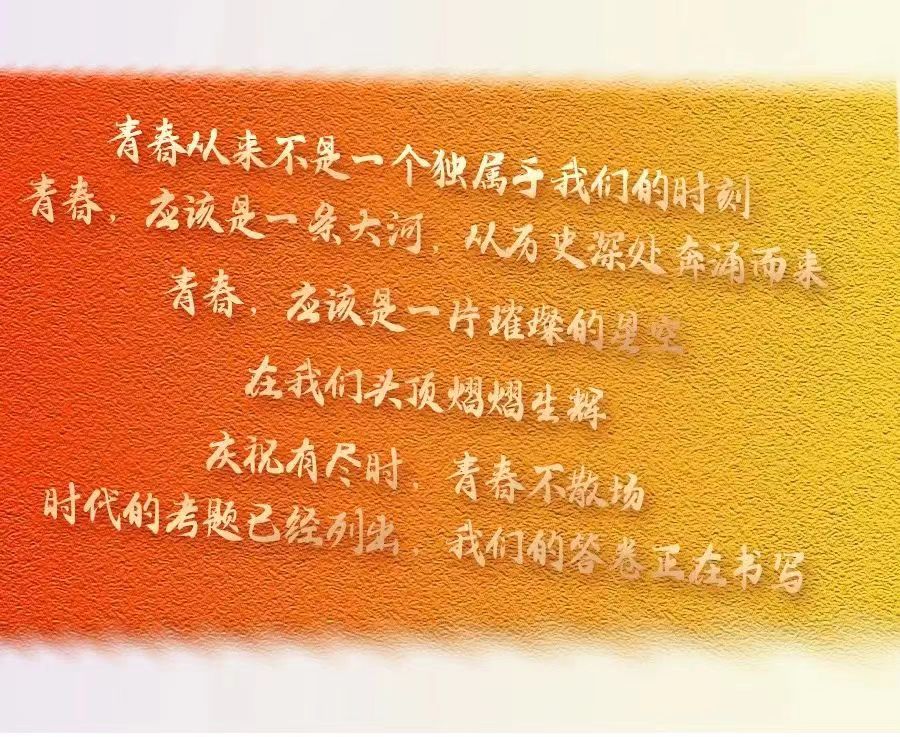 青春从来不是一个独属于我们的时刻
青春，应该是一条大河，从历史深处奔涌而来
青春，应该是一片璀璨的星空
在我们头顶熠熠生辉
庆祝有尽时，青春不散场
时代的考题已经列出，我们的答卷正在书写